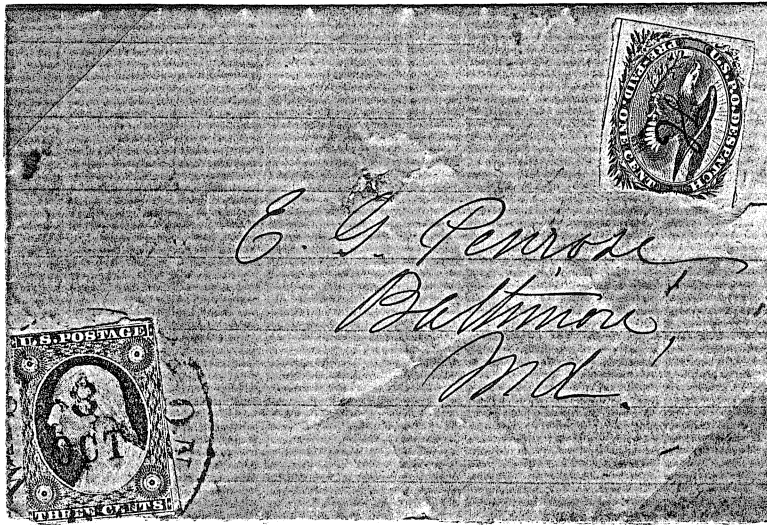 U.S.P.O. DESPATCH
PRE-PAID. ONE CENT.
E. G. Penrose
Baltimore
Md.
U.S. POSTAGE
8
OCT
MO
THREE CENTS